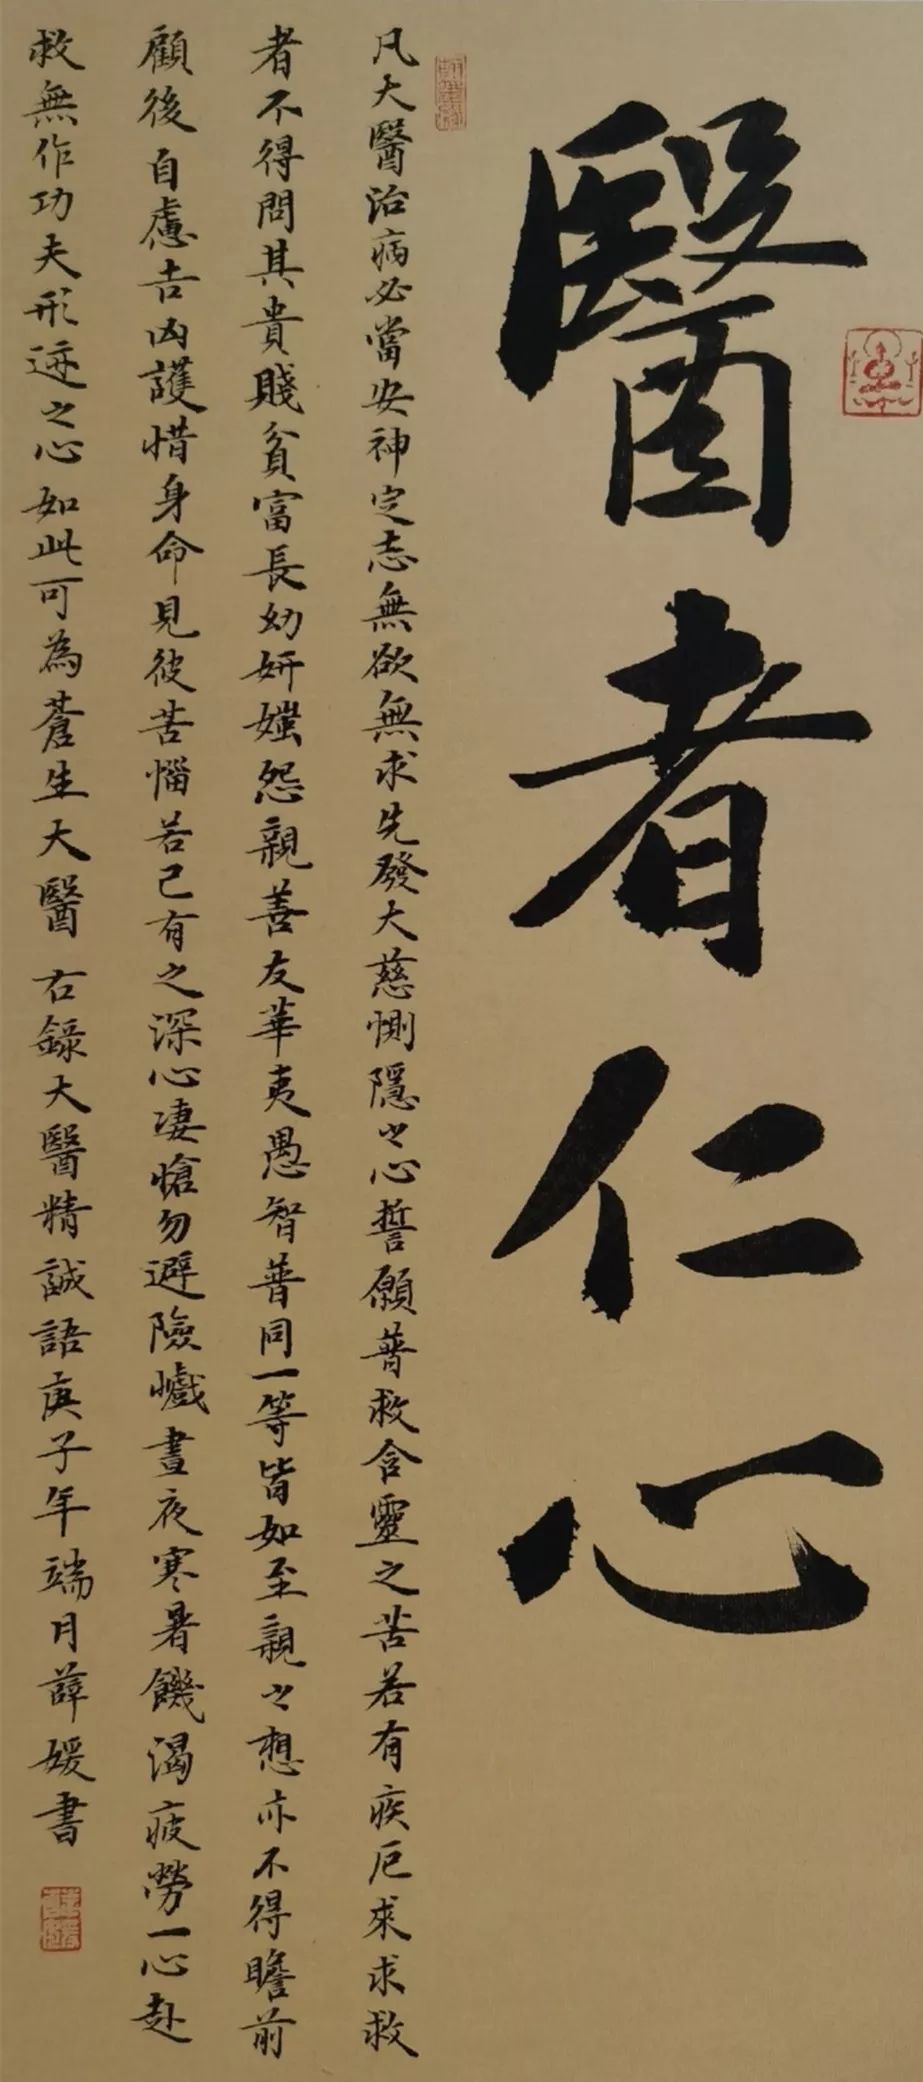 醫者仁心
凡大醫治病必當安神定志無欲無求先發大慈惻隱之心誓願普救含靈之苦若有疾厄來求救
者不得問其貴賤貧富長幼妍媸怨親善友華夷愚智普同一等皆如至親之想亦不得瞻前
顧後自慮吉凶護惜身命見彼苦惱若己有之深心悽愴勿避險巇晝夜寒暑饑渴疲勞一心赴
救無作功夫形迹之心如此可為蒼生大醫 右錄大醫精誠語庚子年端月薛媛書